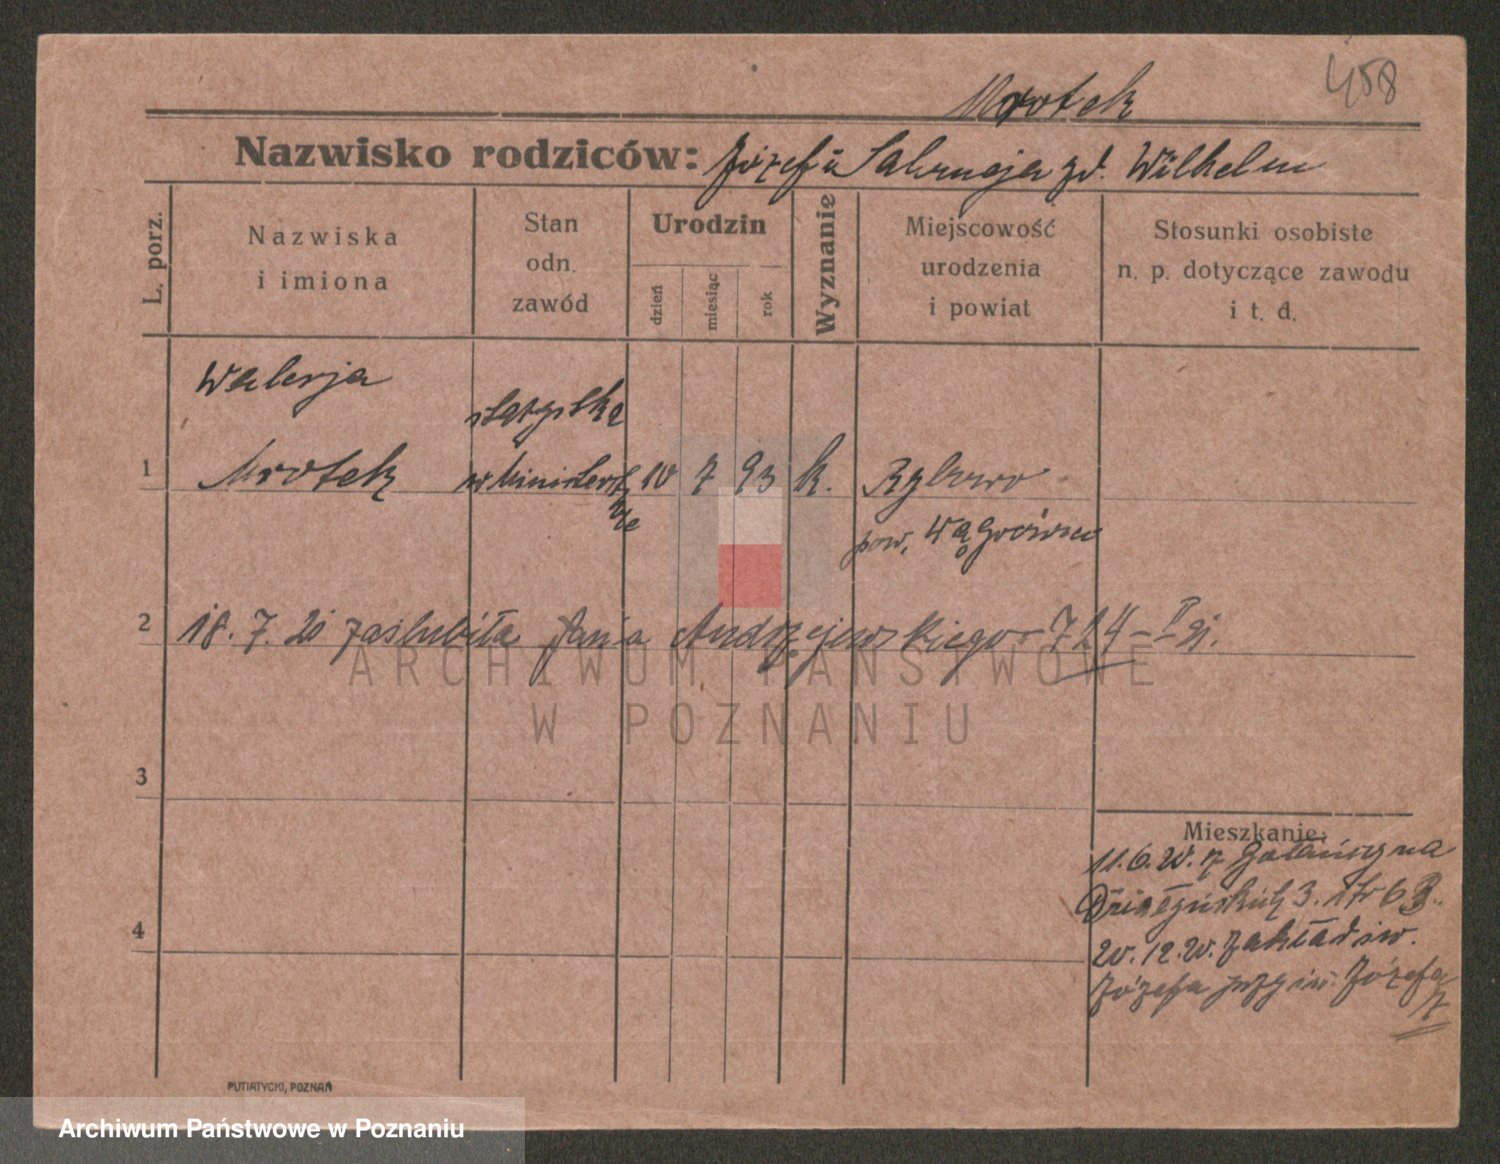 458
Mrotek
Nazwisko rodziców: Józef i zd. Wilhelm
L. porz.
Nazwiska
i imiona
Stan
odn.
zawód
Urodzin
dzień
miesiąc
rok
Wyznanie
Miejscowość
urodzenia
i powiat
Stosunki osobiste
n. p. dotyczące zawodu
i t. d.
Walerja
1 Mrotek 10 7 93 k. Rybowo
pow. Wągrówiec
2 18. 7. zaślubiła Jana Andrzejewskiego 724 - II
3
Mieszkanie:
11. 6. 20. z Gołańczy na
Działyńskich 3.
4
20. 12. 20. Zakład św.
Józefa przy św. Józefa
7
PUTIATYCKI, POZNAŃ
ARCHIWUM PAŃSTWOWE
W POZNANIU
Archiwum Państwowe w Poznaniu